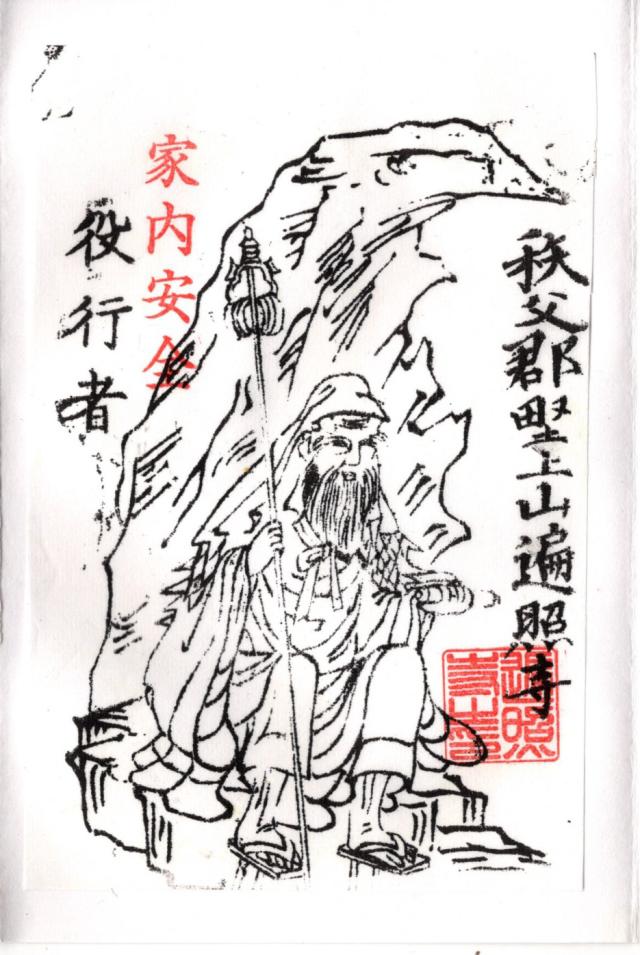 秩父郡野上山遍照寺
家内安全
役行者
遍照